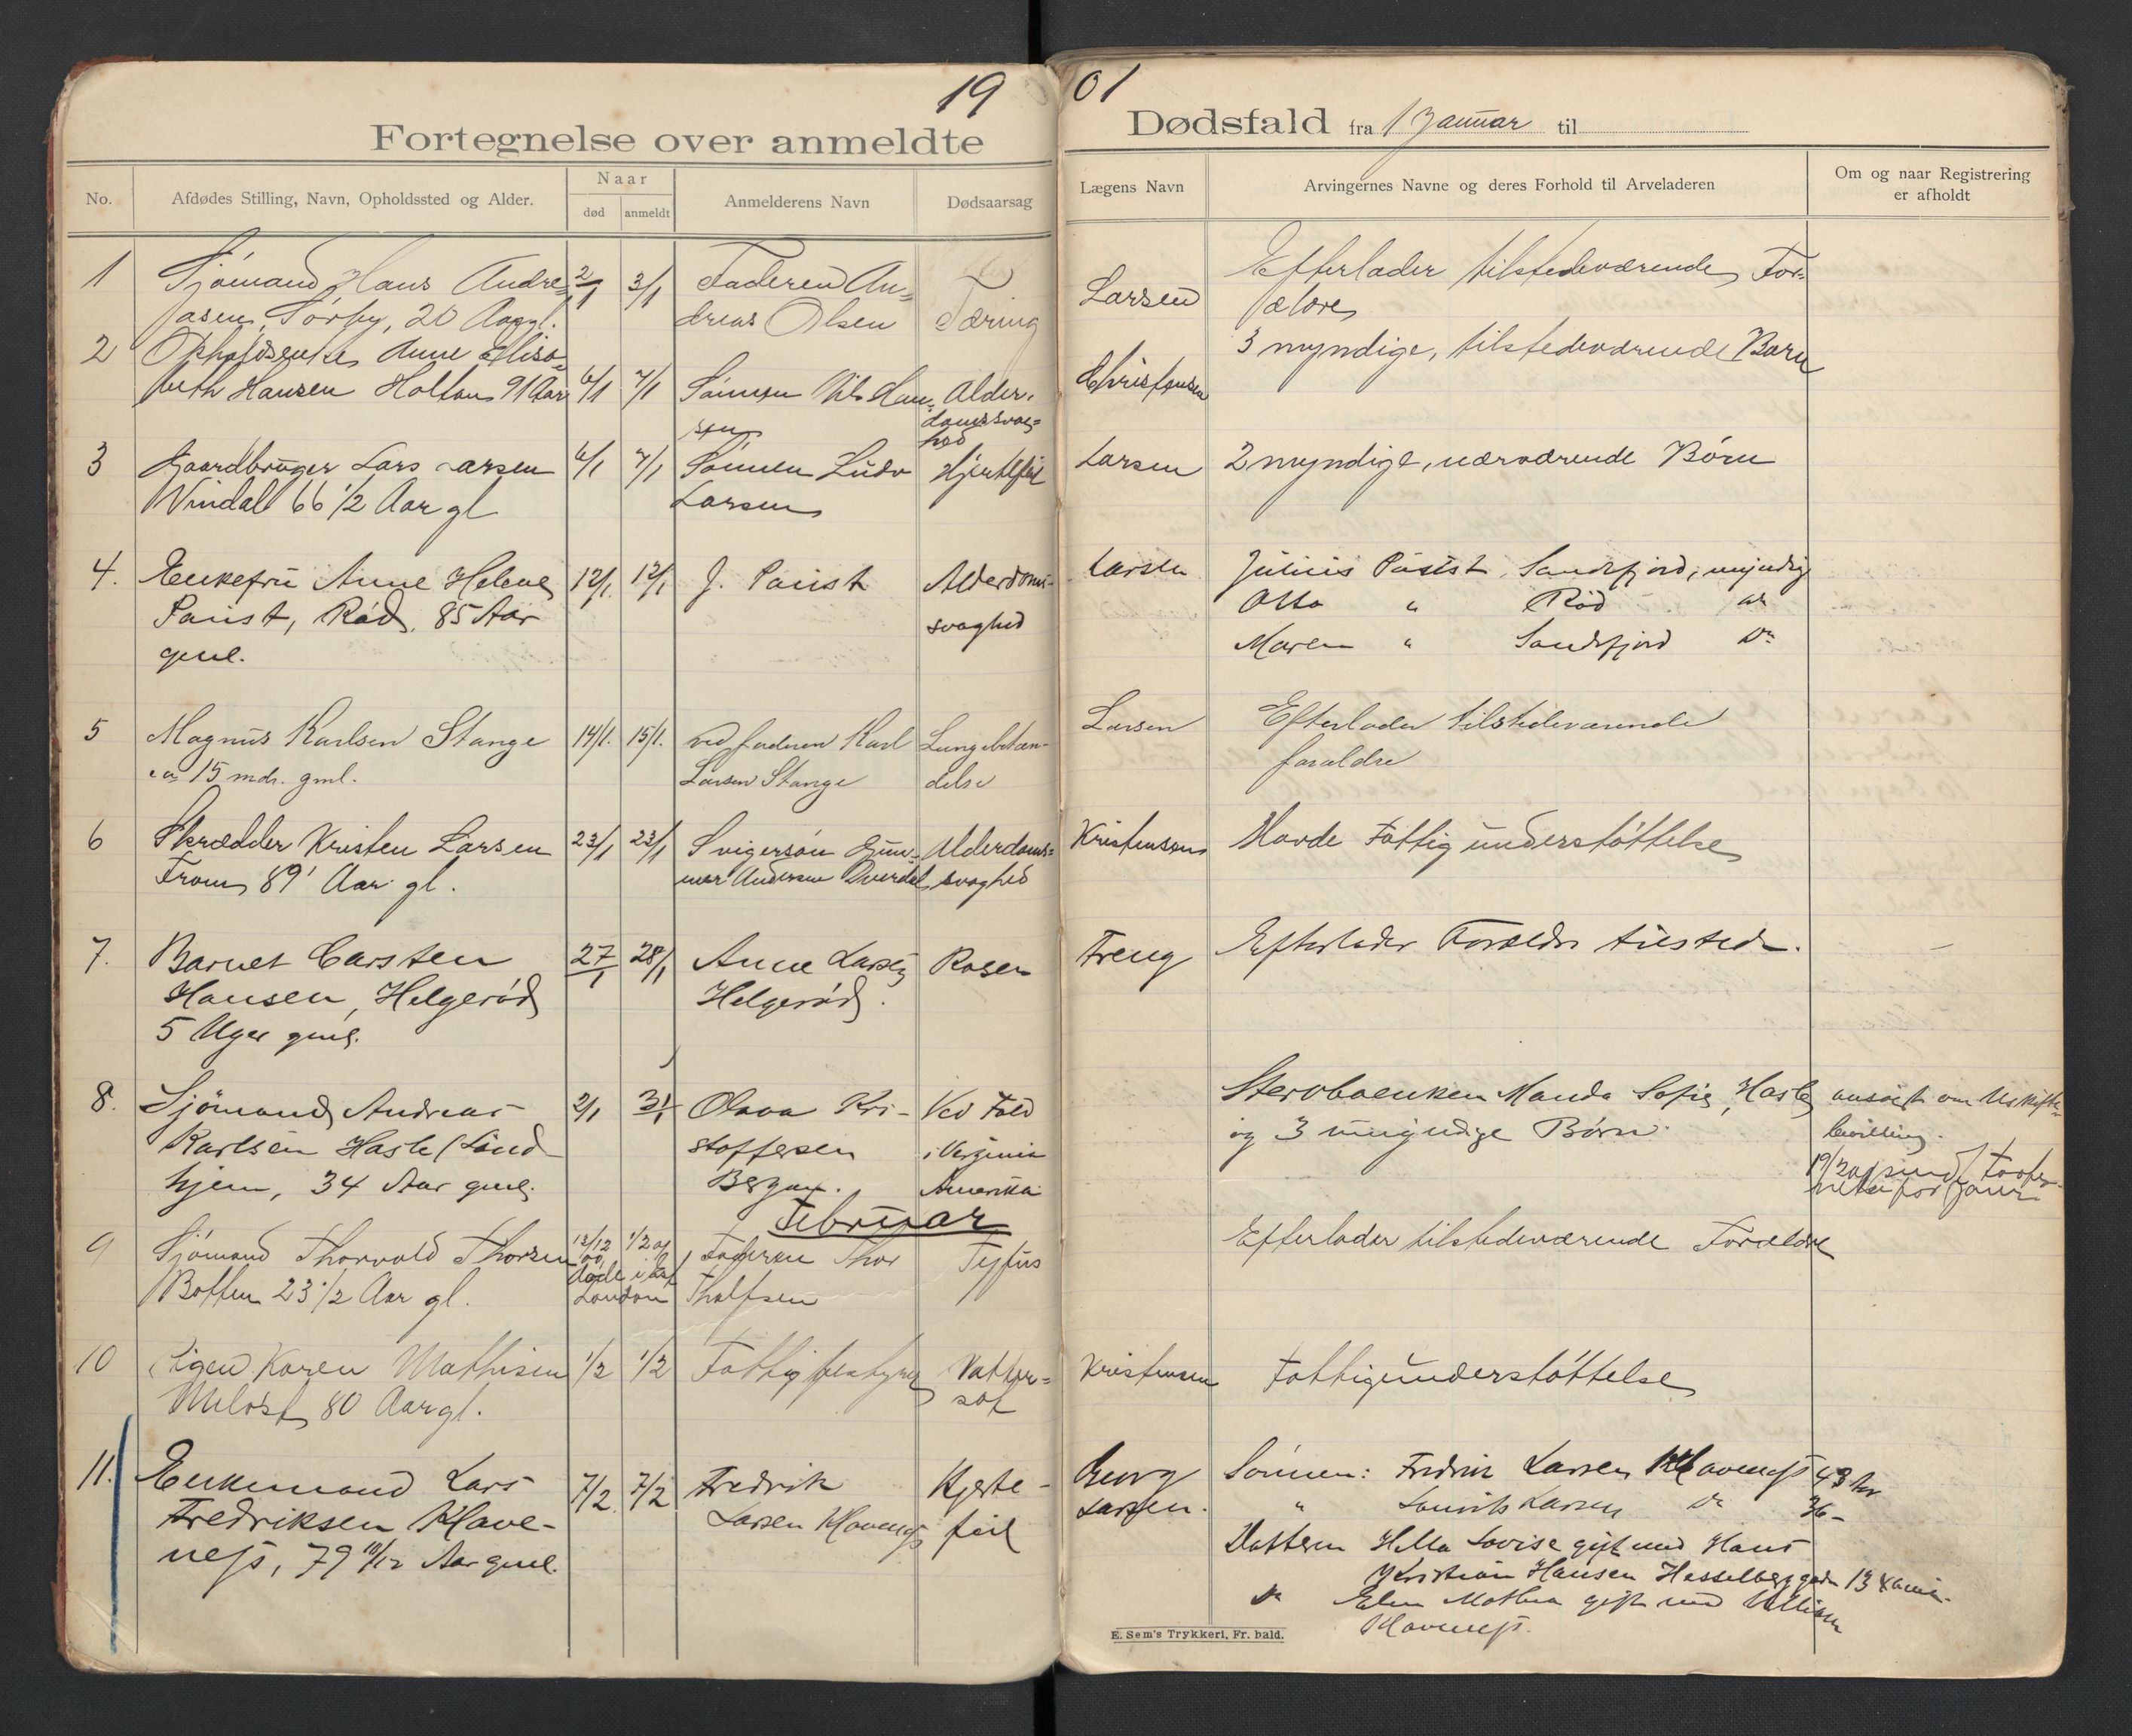 1901
Fortegnelse over anmeldte Dødsfald fra 1 Januar til
No.
Afdødes Stilling, Navn, Opholdssted og Alder.
Naar
død
anmeldt
Anmelderens Navn
Dødsaarsag
Lægens Navn
Arvingernes Navne og deres Forhold til Arveladeren
Om og naar Registrering
er afholdt
1
Sjømand Hans Andre=
asen, Sørby, 20 Aar gl.
2/1
3/1
Faderen An=
dreas Olsen
Tæring
Larsen
Efterlader tilstedeværende For=
ældre
2
Anne Elisa=
beth Hansen Holtan 91 Aar
6/1
7/1
Sønnen Nils Han=
sen
Alder=
domssvag=
hed
Christensen
3 myndige, tilstedeværende Børn
3
Gaardbruger Lars Larsen
Vindal 66 1/2 Aar gl
6/1
7/1
Sønnen Ludv
Larsen
Hjertefeil
Larsen
2 myndige, nærværende Børn
4.
Enkefru Anne Helene
Paust, Rød, 85 Aar
gml.
12/1.
12/1
J. Paust
Alderdoms-
svaghed
Larsen
Julius Paust, Sandefjord, myndig
Otto " Rød do
Maren " Sandefjord Do
5
Magnus Karlsen Stange
ca 15 mdr. gml.
14/1.
15/1.
ved faderen Karl
Larsen Stange
Lungebetæn-
delse
Larsen
Efterlader tilstedeværende
forældre
6
Skrædder Kristen Larsen
From, 89 Aar gl.
23/1
23/1
Svigersøn Gun=
nar Andersen
Alderdoms=
svaghed
Kristensen
Havde Fattigunderstøttelse
7.
Barnet Carsten
Hansen, Helgerød
5 Uger gml.
27/1
28/1
Anne Larsen
Helgerød.
Rosen
Freng
Efterlader Forældre tilstede.
8.
Sjømand Andreas
Karlsen Hasle (Sand
hjem, 34 Aar gml.
2/1
31/1
Olava Kri-
stoffersen
Bergan.
Ved Fald
i Virginia
Amerika
Stervboenken Manda Sofie, Hasle
og 3 umyndige Børn.
ansøgt om Uskifte-
bevilling.
Februar
9
Sjømand Thorvold Thorsen
Botten 23 1/2 Aar gl.
12/12
00
1/2 01
Døde i
London
Faderen Thor
Tholfsen
Tyfus
Efterlader tilstedeværende Forældre
10
Pigen Karen Mathisen
80 Aar gl.
1/2
1/2
Fattigbestyrer
Vatter=
sot
Kristensen
Fattigunderstøttelse
11.
Enkemand Lars
Fredriksen Klave-
ness, 79 10/12 Aar gml.
7/2
7/2
Fredrik
Larsen Klavenes
Hjerte-
feil
Georg
Larsen.
Sønnen: Fredrik Larsen Klaveness 48 Ar
" Larsen do 36 -
Datteren Lovise gift med Hans
Kristian Hansen Hesselberg
do Elen Mathea gift med William
Klaveness.
E. Sem's Trykkeri, Fr. hald.